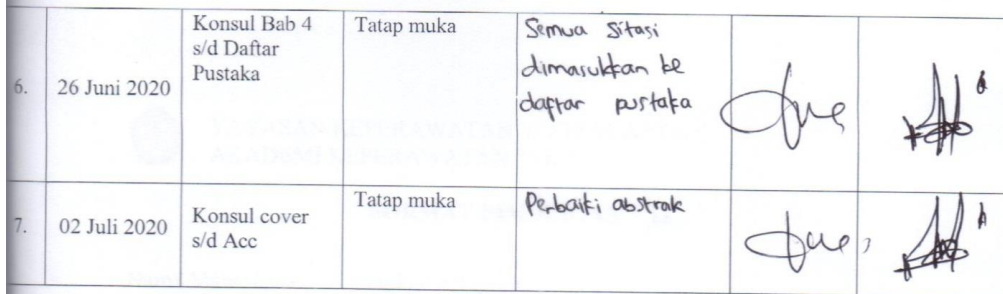 6.
26 Juni 2020
Konsul Bab 4
s/d Daftar
Pustaka
Tatap muka
Semua Sitasi
dimasukkan ke
daftar pustaka
7.
02 Juli 2020
Konsul cover
s/d Acc
Tatap muka
Perbaiki abstrak